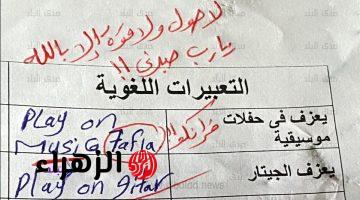 لا حول ولا قوة إلا بالله
يارب صبرني !!
التعبيرات اللغوية
يعزف في حفلات
موسيقية
Play on
Music
يعزف الجيتار
Play on gitar
الزهراء
صدى البلد